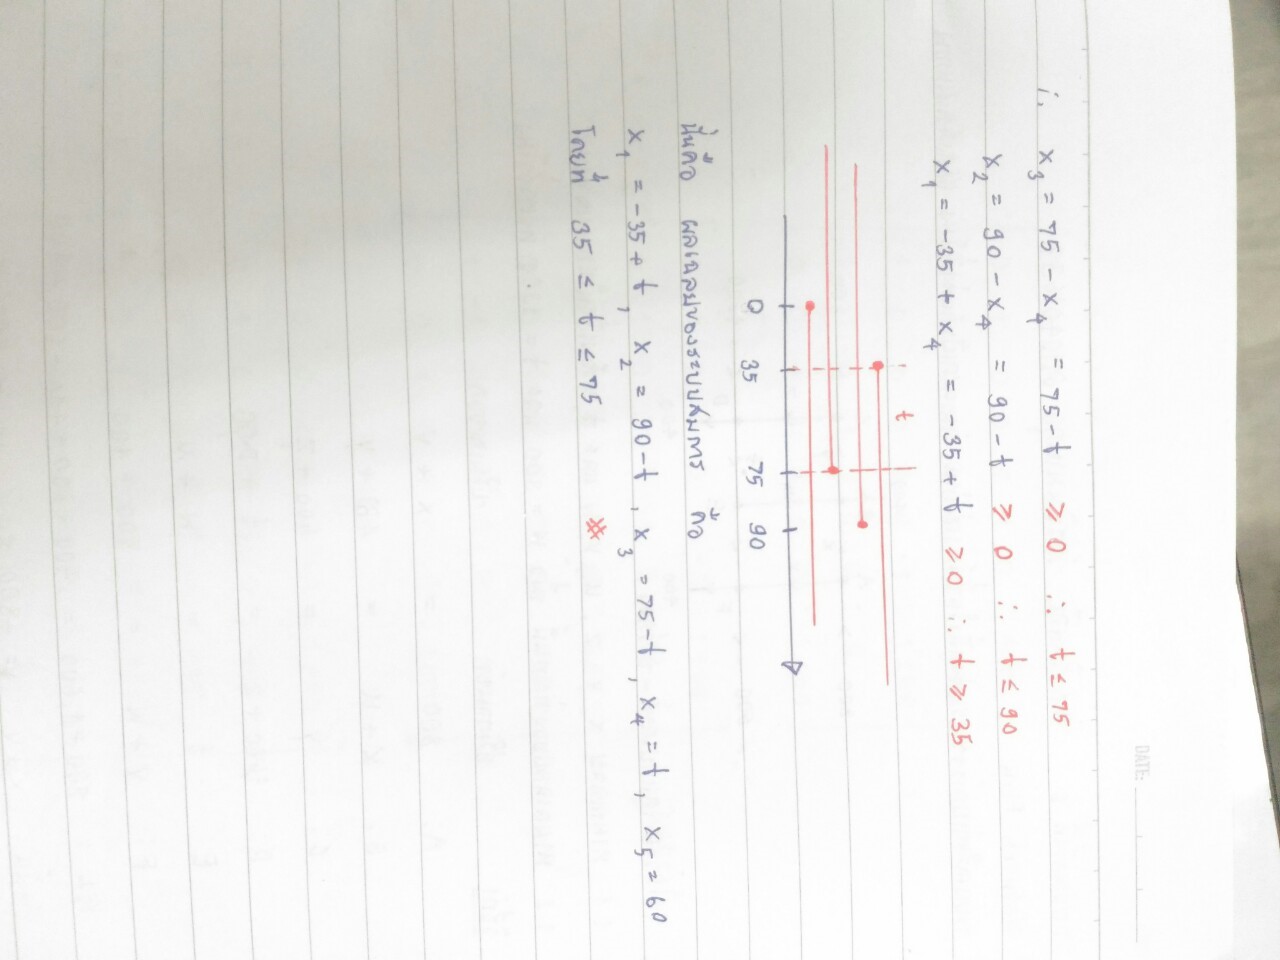 DATE:
i. x₃ = 75 - x₄ = 75 - t ≥ 0 ∴ t ≤ 75
x₂ = 90 - x₄ = 90 - t ≥ 0 ∴ t ≤ 90
x₁ = -35 + x₄ = -35 + t ≥ 0 ∴ t ≥ 35
t
0 35 75 90
นั่นคือ ผลเฉลยของระบบสมการ คือ
x₁ = -35 + t, x₂ = 90 - t, x₃ = 75 - t, x₄ = t, x₅ = 60
โดยที่ 35 ≤ t ≤ 75